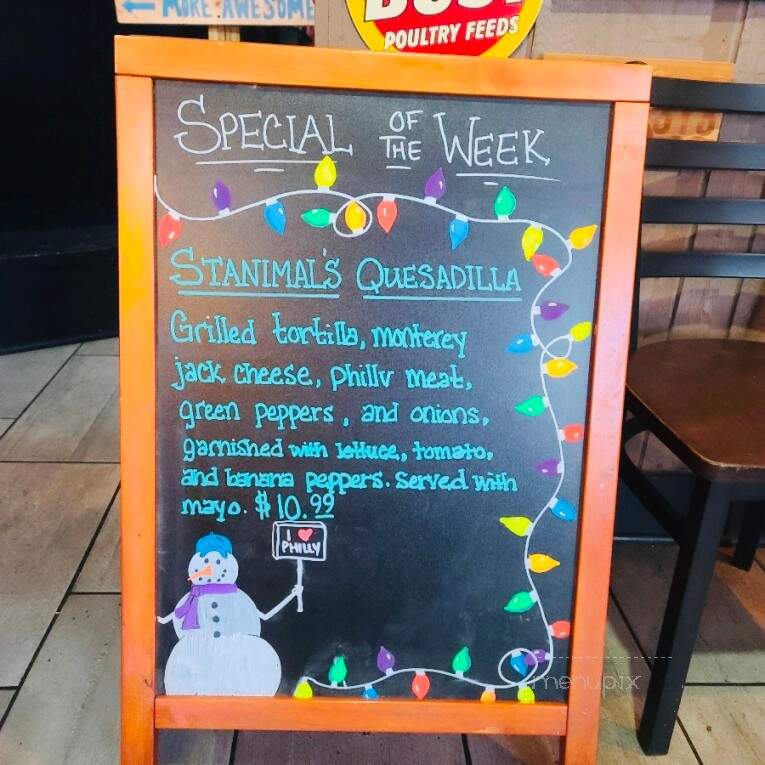 ← MORE AWESOME
POULTRY FEEDS
SPECIAL OF THE WEEK
STANIMAL'S QUESADILLA
Grilled tortilla, monterey
jack cheese, philly meat,
green peppers, and onions,
garnished with lettuce, tomato,
and banana peppers. Served with
mayo. $10.99
I ❤
PHILLY
menupix